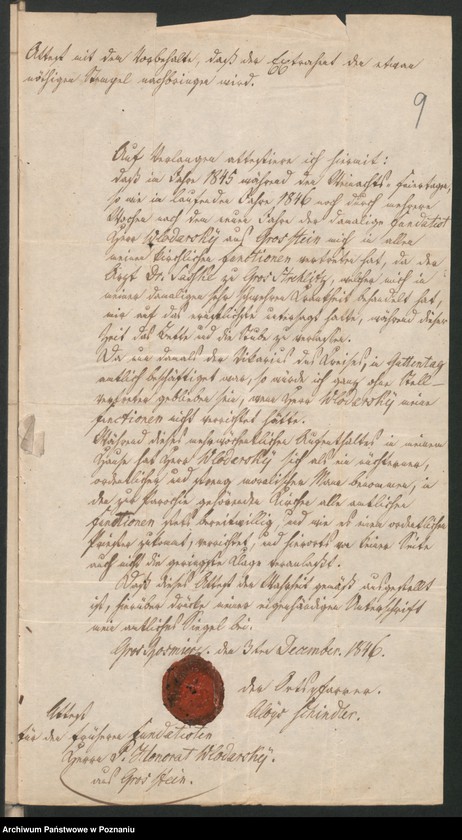 Attest mit dem Vorbehalte, daß der Extrahent den etwan
nöthigen Stempel nachbringen wird.
9
Auf Verlangen attestire ich hiermit:
daß im Jahre 1845 während den Weinachts-Feiertagen,
so wie im laufenden Jahre 1846 noch durch mehrere
Wochen nach dem neuen Jahre der damalige Fundatist
Herr Wlodarský aus Gros Stein mich in allen
meinen kirchlichen Functionen vertreten hat, da der
Arzt Dr. zu Gros Strehlitz, welcher mich in
meiner damaligen sehr schweren Krankheit behandelt hat,
mir auf das untersagt hatte, während dieser
Zeit das Bette und die Stube zu verlassen.
Da nun damals der Vikarius des Kreises, in Guttentag
amtlich beschäftiget war, so würde ich ganz ohne Stell-
vertreter geblieben sein, wenn Herr Wlodarský meine
Functionen nicht verrichtet hätte.
Während dieses mehrwochentlichen Aufenthaltes in meinem
Hause hat Herr Wlodarský sich als ein nüchterner,
ordentlicher und streng moralischer Mann benommen, in
der zur Parochie gehörenden Kirche alle amtlichen
Functionen stets bereitwillig, und wie es einem ordentlichen
Priester zukommt, verrichtet, und hierorts von keiner Seite
auch nicht die geringste Klage veranlaßt.
Daß dieses Attest der Wahrheit gemäß ausgestellt
ist, hierüber drücke meiner eigenhändigen Unterschrift
mein amtliches Siegel bei.
Gros den 3ten Dezember. 1846.
der Ortspfarrer.
Aloys Schindler.
Attest
für den früheren Fundatisten
Herrn P. Honorat Wlodarský.
aus Gros Stein.
Archiwum Państwowe w Poznaniu